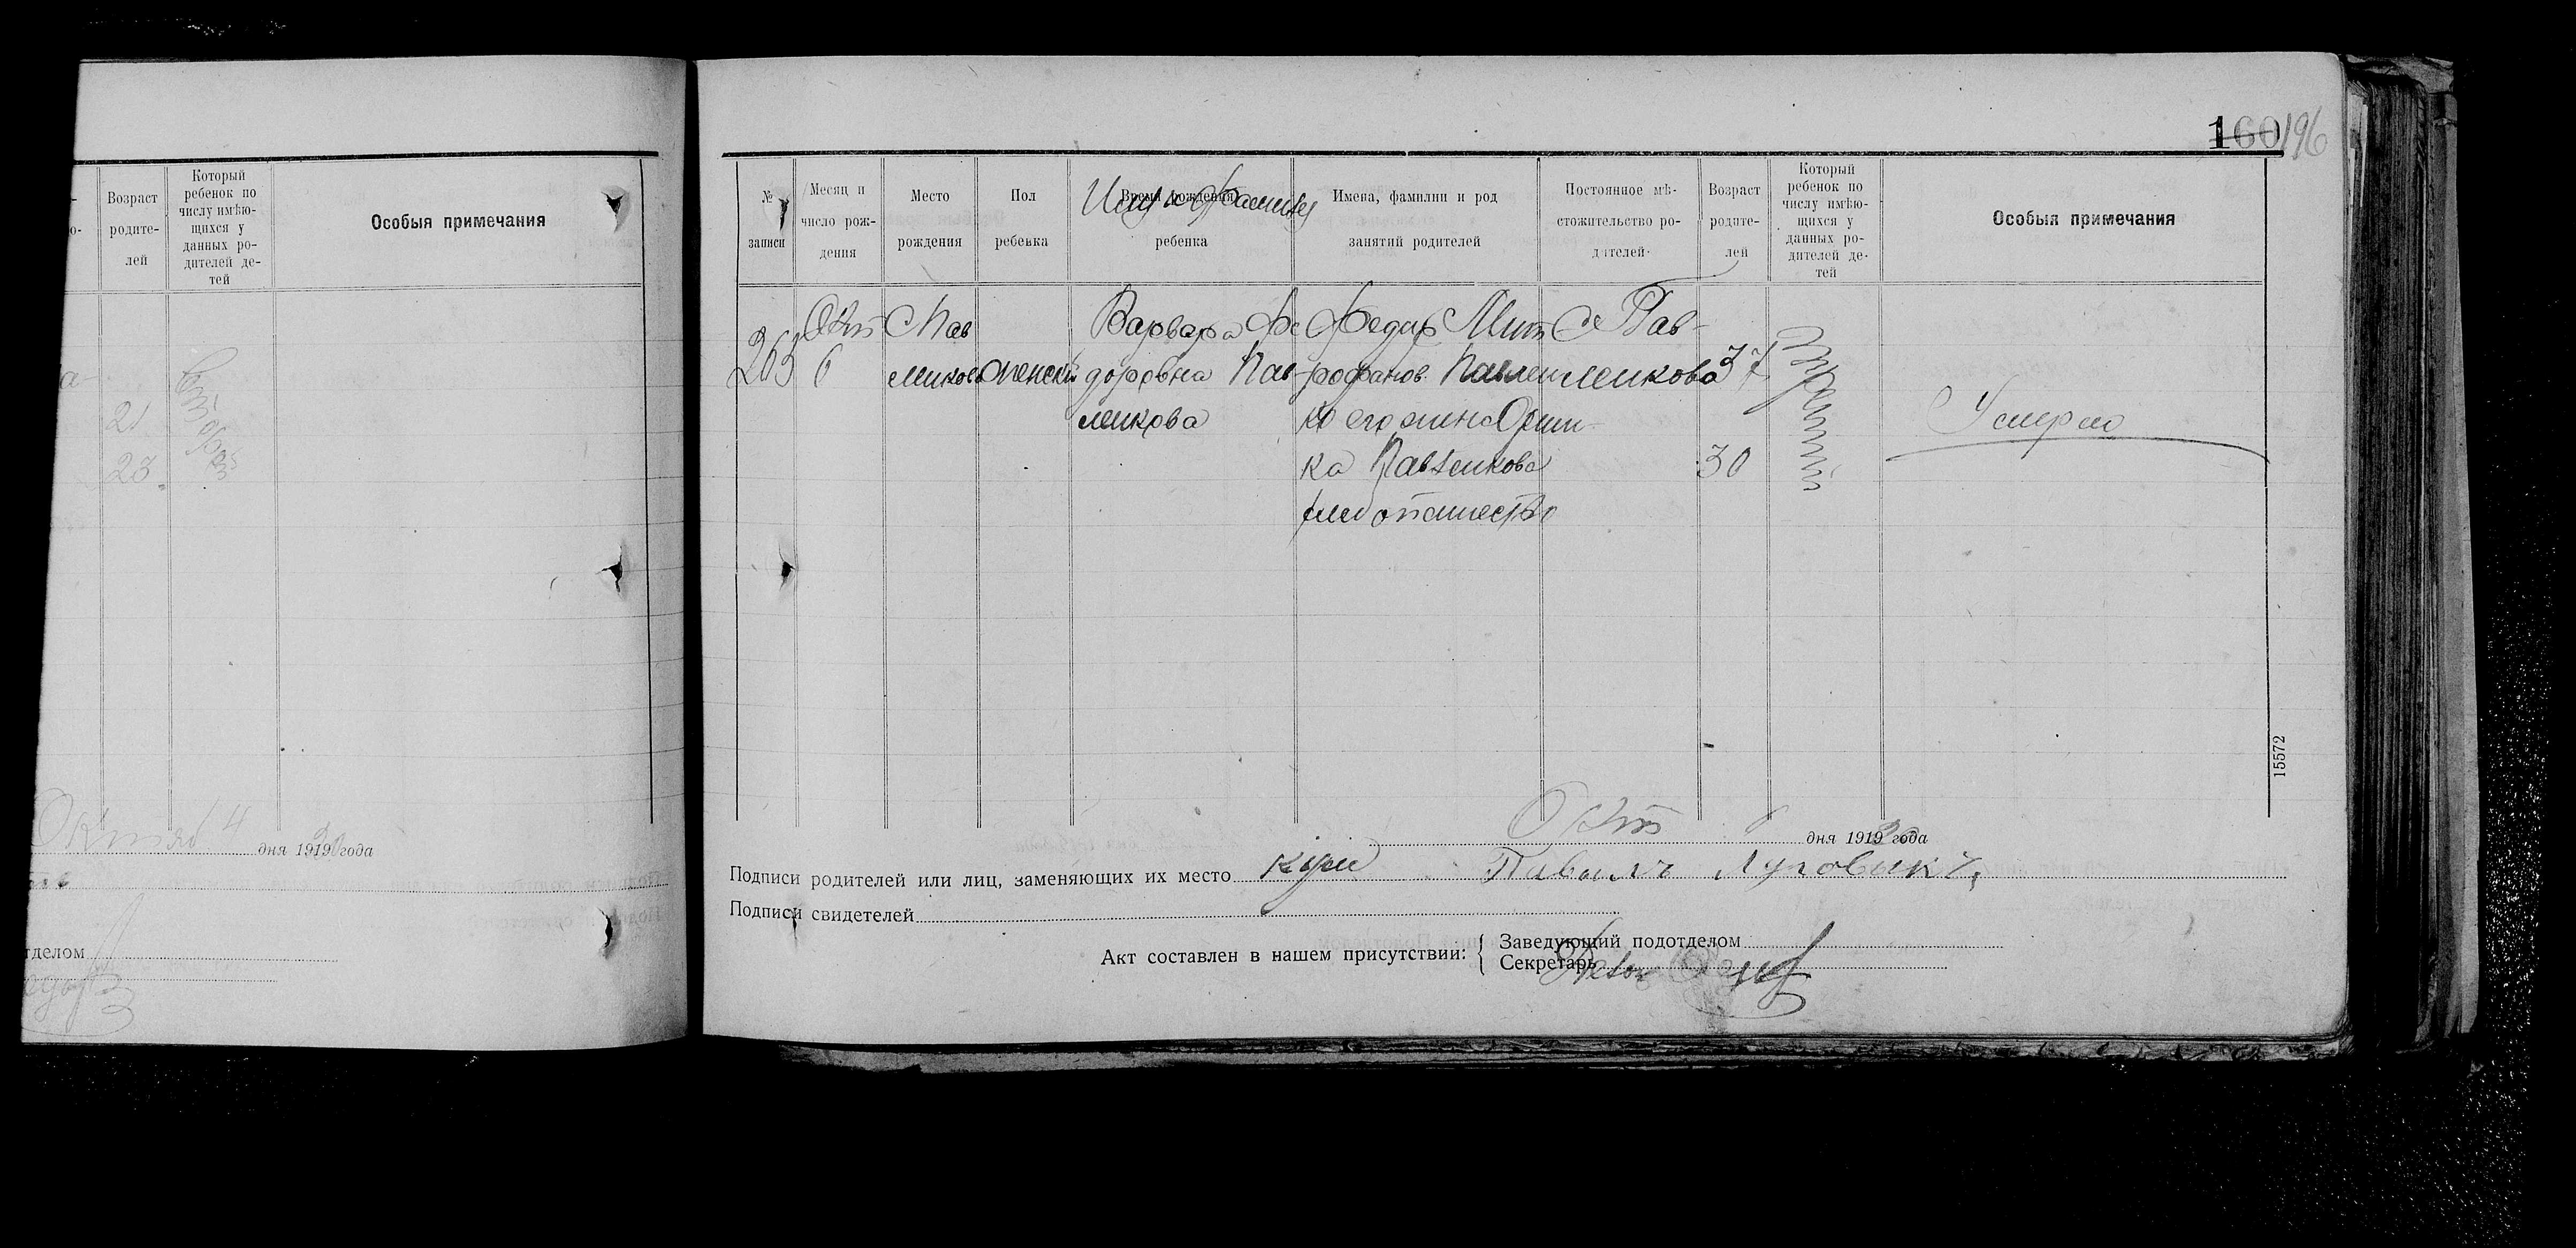 160 196
Возраст
родите-
лей
Который
ребенок по
числу имѣю-
щихся у
данных ро-
дителей де-
тей
Особыя примечания
21
23
второй
Октяб 4 дня 1919 года
отделом
№
записи
Месяц и
число рож-
дения
Место
рождения
Пол
ребенка
Время рождения
Имя и Фамилия
ребенка
Имена, фамилии и род
занятий родителей
Постоянное мѣ-
стожительство ро-
дителей
Возраст
родите-
лей
Который
ребенок по
числу имѣю-
щихся у
данных ро-
дителей де-
тей
Особыя примечания
263
Окт
6
С Пав
ленково
женский
Варвара Фе
доровна Пав-
ленкова
Федир Мит
рофанов Павлен
ко его жина Ориш-
ка Павленкова
хлебопашество
С Пав-
ленкова
37
30
третий
Умерла
15572
Окт 6 дня 1919 года
Подписи родителей или лиц, заменяющих их место кум Павылъ Луговыкъ
Подписи свидетелей
Акт составлен в нашем присутствии: { Заведующий подотделом
Секретарь